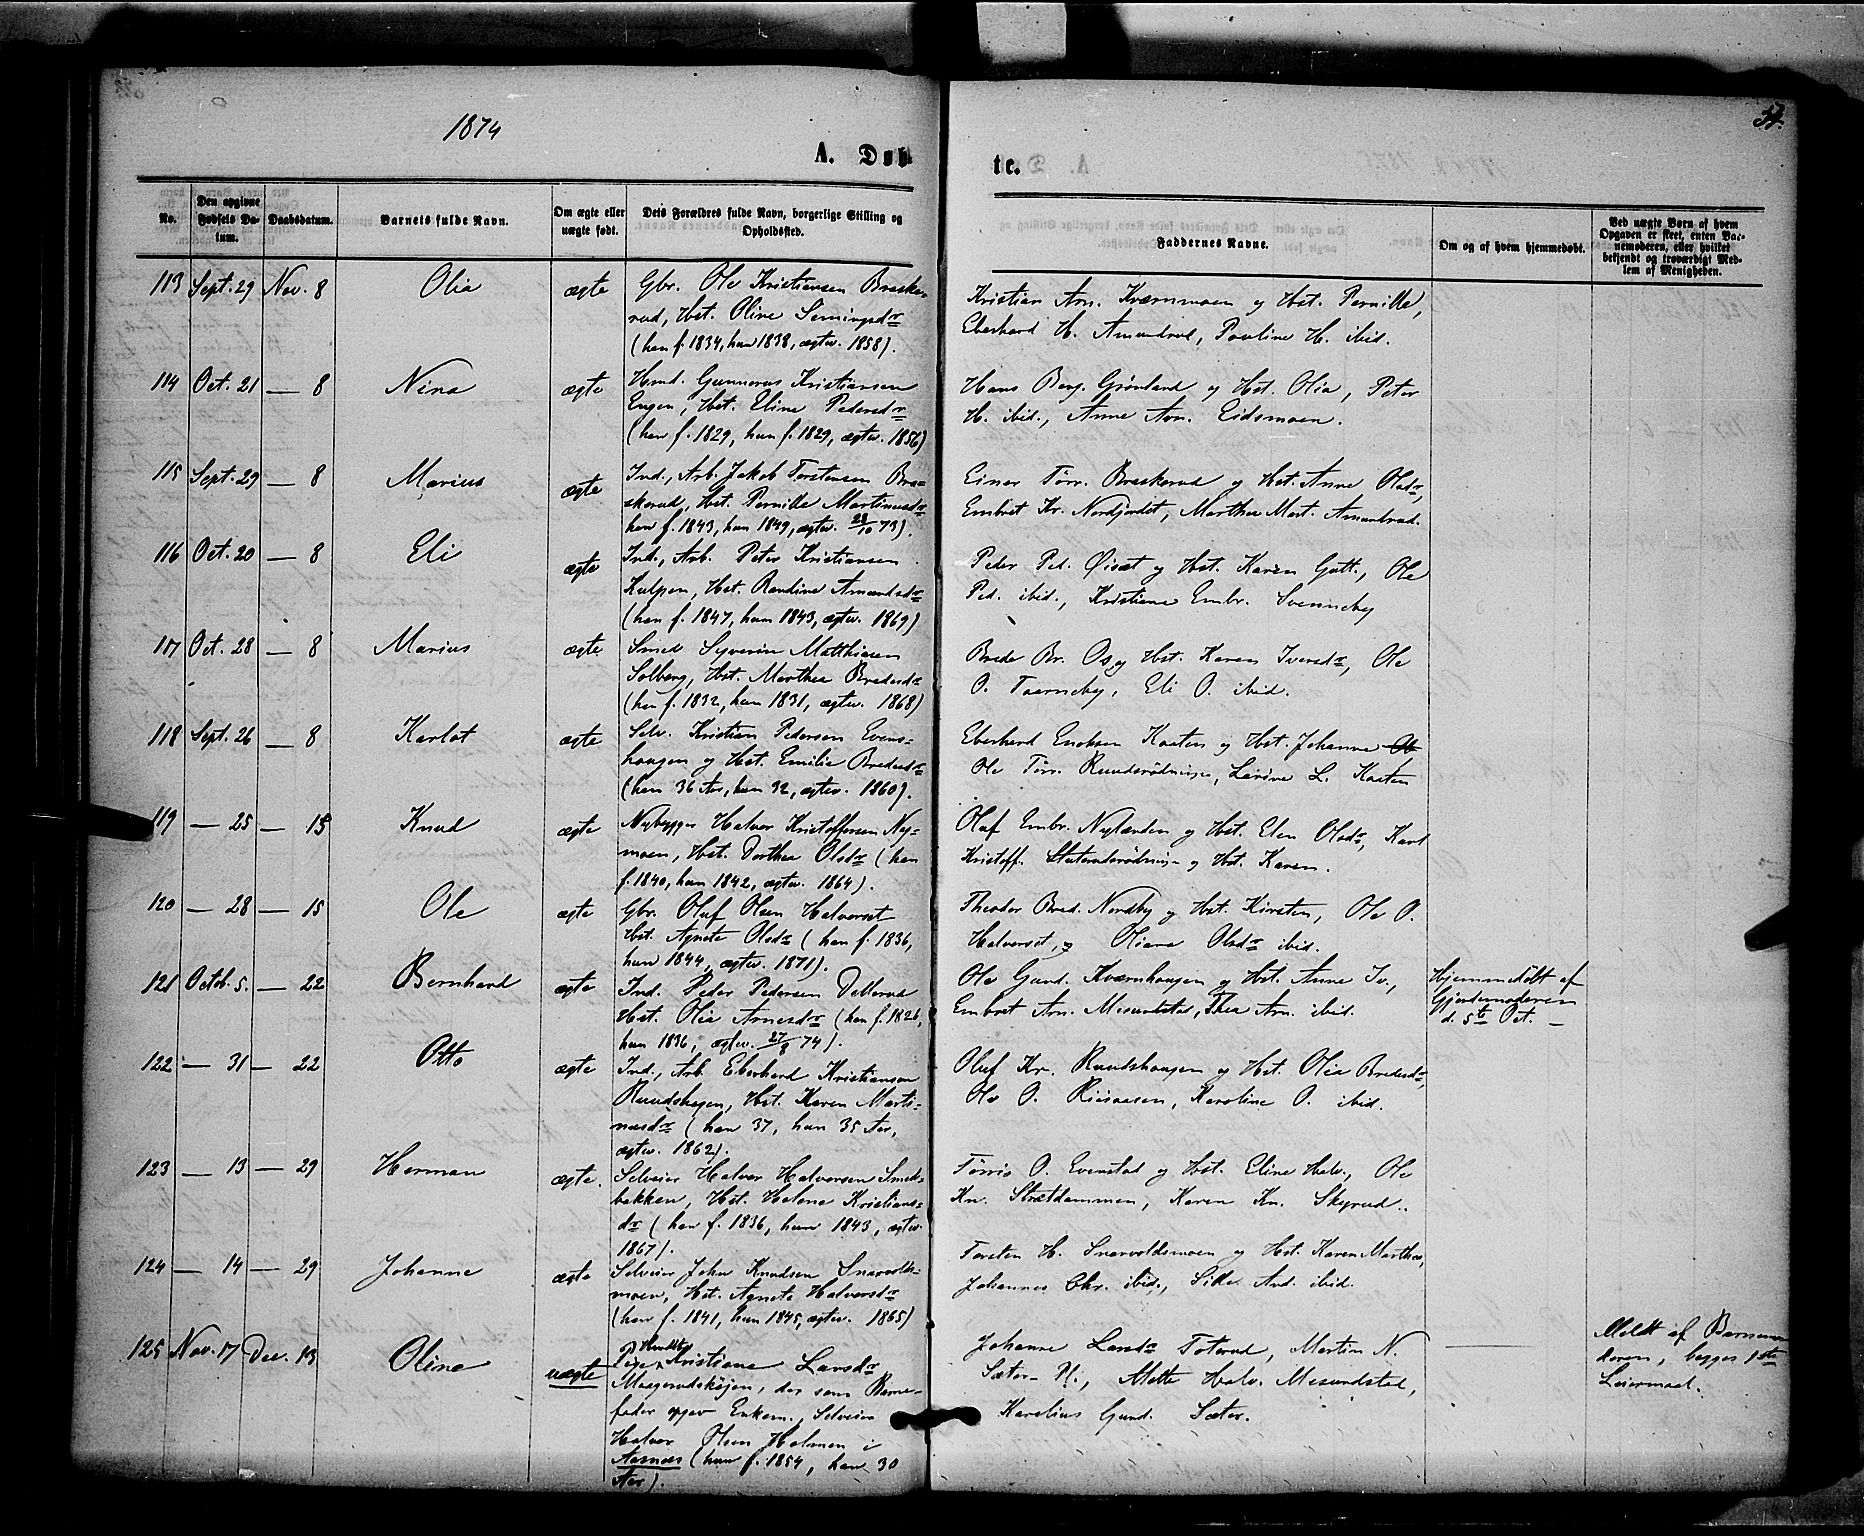 1874
A. Døb
te.
34.
No.
Den opgivne Fødsels Datum.
Daabsdatum.
Barnets fulde Navn.
Om ægte eller uægte født.
Dets Forældres fulde Navn, borgerlige Stilling og Opholdssted.
Faddernes Navne.
Om og af hvem hjemmedøbt.
Ved uægte Børn af hvem Opgaven er skeet, enten Barnemoderen, eller hvilket bekjendt og troværdigt Medlem af Menigheden.
113 Sept. 29 Nov. 8 Olia ægte Gbr. Ole Kristiansen Braske-
rud, Hst. Oline Semingsdr
(han f. 1834, hun 1838, ægtev. 1858).
Kristian Arn. Kværnmoen og Hst. Pernille,
Eberhard H. Amundrud, Pauline H. ibid.
114 Oct. 21 — 8 Nina ægte Hmd. Gunnerus Kristiansen
Engen, Hst. Eline Pedersdr
(han f. 1829, hun f. 1829, ægtev. 1856)
Hans Berg. Grønland og Hst. Olia, Peter
H. ibid., Anne Arn. Eidsmoen.
115 Sept. 29 — 8 Marius ægte Ind., Arb. Jakob Torstensen Bra-
skerud, Hst. Pernille Martinusdr
han f. 1843, hun 1849, ægtev. 28/10 73).
Einar Törr. Braskerud og Hst. Anne Olsdr,
Embret Kr. Nordjordet, Marthea Mart. Amundrud.
116 Oct. 20 — 8 Eli ægte Ind., Arb. Peter Kristiansen
Kulpen, Hst. Randine Amundsdr
(han f. 1847, hun 1843, ægtev. 1869)
Peder Ped. Øisæt og Hst. Karen Gutt., Ole
Ped. ibid., Kristiane Embr. Svenneby
117 Oct. 28 — 8 Marius ægte Smed Syverin Matthiasen
Solberg, Hst. Marthea Bredesdr
(han f. 1832, hun 1831, ægtev. 1868)
Brede Br. Os og Hst. Karen Iversdr, Ole
O. Taarneby, Eli O. ibid.
118 Sept. 26 — 8 Karlot ægte Selv. Kristian Pedersen Evens-
haugen og Hst. Emilie Bredesdr
(han 36 Aar, hun 32, ægtev. 1860).
Eberhard Eriksen Kaaten og Hst. Johanne
Ole Törr. Rundsrødningen, L. Kaaten
119 — 25 — 15 Knud ægte Nybygger Halvor Kristoffersen Ny-
moen, Hst. Dorthea Olsdr (han
f. 1840, hun 1842, ægtev. 1864).
Olaf Embr. Nylænden og Hst. Elen Olsdr, Karl
Kristoff. og Hst. Karen.
120 — 28 — 15 Ole ægte Gbr. Oluf Olsen Halvorset
Hst. Agnete Olsdr (han f. 1836,
hun 1844, ægtev. 1871).
Theodor Bred. Nordby og Hst. Kirsten, Ole O.
Halvorset, og Oliane Olsdr ibid.
121 Octob. 5. — 22 Bernhard ægte Ind. Peder Pedersen Dellerud
Hst. Olia Arnesdr (han f. 1826,
hun 1836, ægtev. 27/8 74).
Ole Gund. Kværnhaugen og Hst. Anne Iv.,
Embret Arn. Mesundstad, Thea Arn. ibid.
Hjemmedöbt af
Gjordemoderen
d. 5te Oct. —
122 — 31 — 22 Otto ægte Ind., Arb. Eberhard Kristiansen
Rundshagen, Hst. Karen Marti-
nusdr (han 37, hun 35 Aar,
ægtev. 1862).
Oluf Kr. Rundshaugen og Hst. Olia Bredesdr,
Ole O. Riisaasen, Karoline O. ibid.
123 — 13 — 29 Herman ægte. Selveier Halvor Halvorsen Smed-
bakken, Hst. Helene Kristians-
dr (han f. 1836, hun 1843, ægtev.
1867).
Törris O. Evenstad og Hst. Eline Halv., Ole
Kn. Strætdammen, Karen Kn. Skyrud.
124 — 14 — 29 Johanne ægte Selveier John Knudsen Snarvolds-
moen, Hst. Agnete Halvorsdr
(han f. 1841, hun 1845, ægtev. 1865)
Torsten H. Snarvoldsmoen og Hst. Karen Marthea,
Johannes Chr. ibid., Sille And. ibid.
125 Nov. 17 Dec. 13 Oline uægte Pige Kristiane Larsdr
Maagerudshöjen, der som Barne-
fader opgav Enkem., Selveier
Halvor Olsen Holmen i
Aasnæs (hun f. 1854, han 30
Aar).
Johanne Larsdr Toterud, Martin N.
Sæter N., Mette Halv. Mesundstad,
Karelius Gund. Sæter.
Meldt af Barnemo-
deren, begges 1ste
Leiermaal.